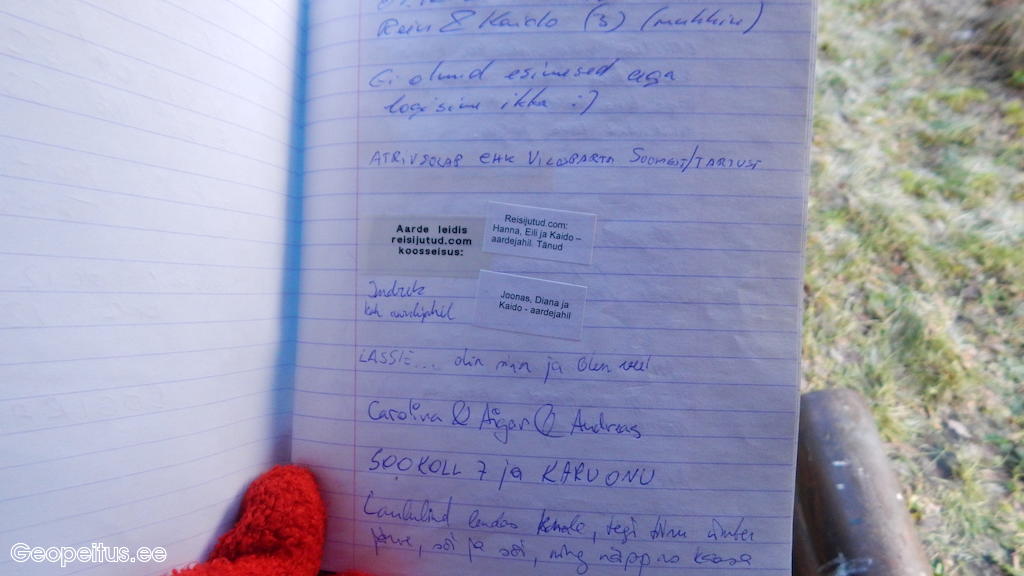 Rein & Kaido (3) (muhkiu)
Ei olnud esimesed aga
logisime ikka :)
ATRIVSOLAP EHK VILLSPARTA SOOMEST/TARTUST
Aarde leidis
reisijutud.com
koosseisus:
Reisijutud.com:
Hanna, Eili ja Kaido –
aardejahil. Tänud
Indrek
ka aardejahil
Joonas, Diana ja
Kaido - aardejahil
LASSIE... olin siin ja olen veel
Carolina & Aigar & Andreas
SOOKOLL 7 ja KARUONU
Laululind lendas kohale, tegi tiiru ümber
järve, sõi ja sõi, ning näpp no kaasa
Geopeitus.ee